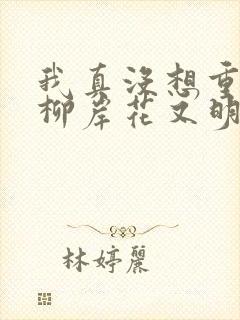 我真没想重
柳岸花又明
林婷麗